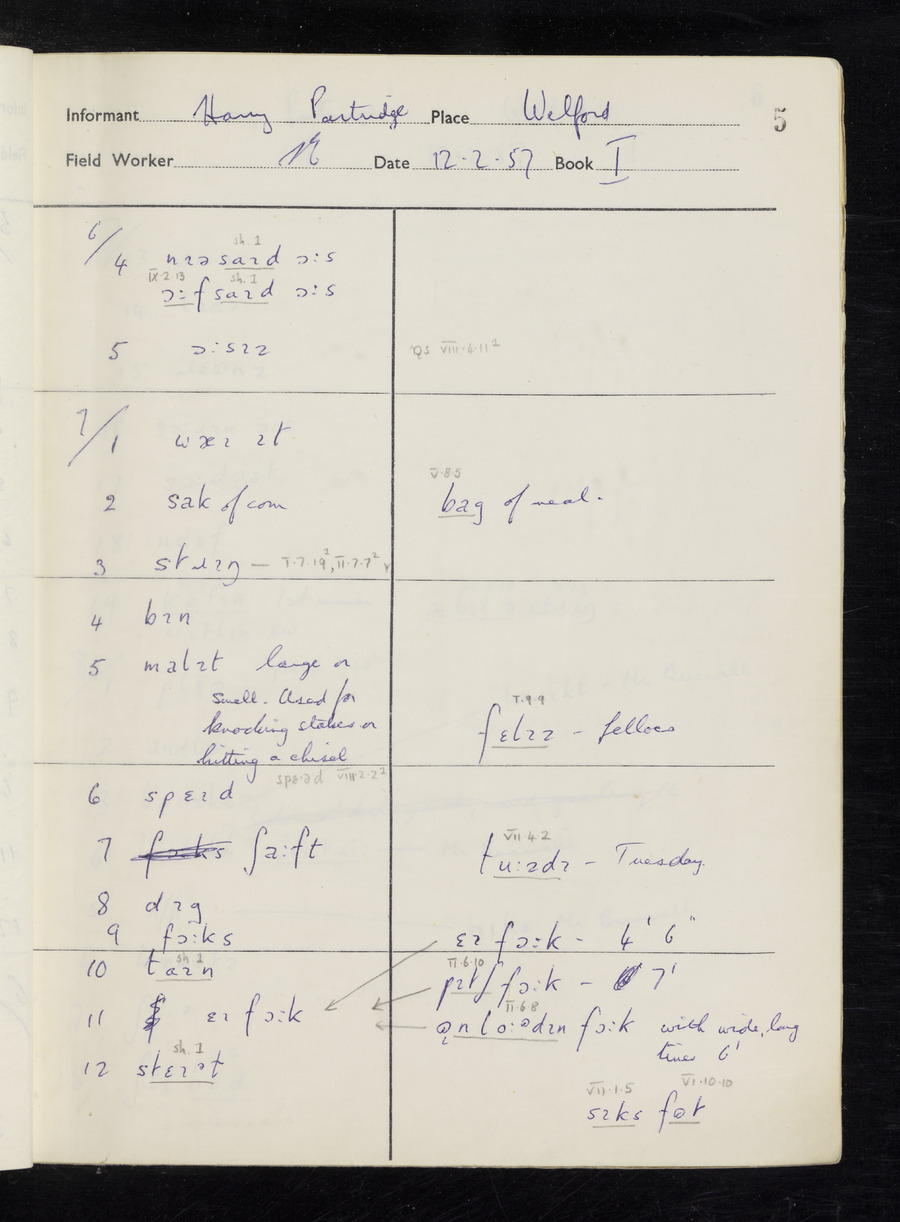 Informant Harry Partridge Place Welford
5
Field Worker Date 12.2.57 Book I
sh. 1
6/4 nɪəsaɪd ɔ:s
IX.2.13 sh. 1
ɔ:fsaɪd ɔ:s
5 ɔ:sɪz
Qs VIII.4.11²
7/1 wæɪ ɪt
V.8.5
2 sak of corn bag of meal.
3 stɹɪŋ — I.7.19², II.7.7²
4 bɪn
5 malɪt large or
small. Used for
knocking stakes or
hitting a chisel
I.9.9
fɛlɪz - felloes
spɛ·əd VIII.2.2²
6 spɛɪd
VII 4.2
7 ʃa:ft tu:zdɪ - Tuesday.
8 dɪg
9 fɔ:ks ɛɪ fɔ:k - 4' 6"
sh 1
10 taɪn
II.6.10
pɪtʃ fɔ:k - 7'
11 ɛɪ fɔ:k
II.6.8
ənlo:ədɪn fɔ:k with wide, long
tines 6'
sh. 1
12 stɛɪət
VII.1.5 VI.10.10
sɪks fət